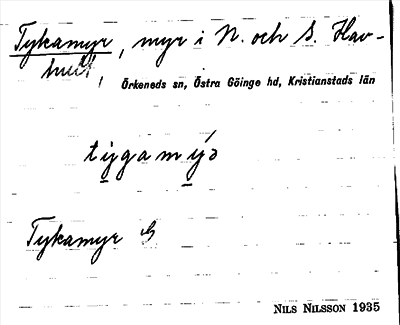 Tykamyr, myr i N. och S. Hav-
hult, Örkeneds sn, Östra Göinge hd, Kristianstads län
tygamýɔ
Tykamyr G
NILS NILSSON 1935